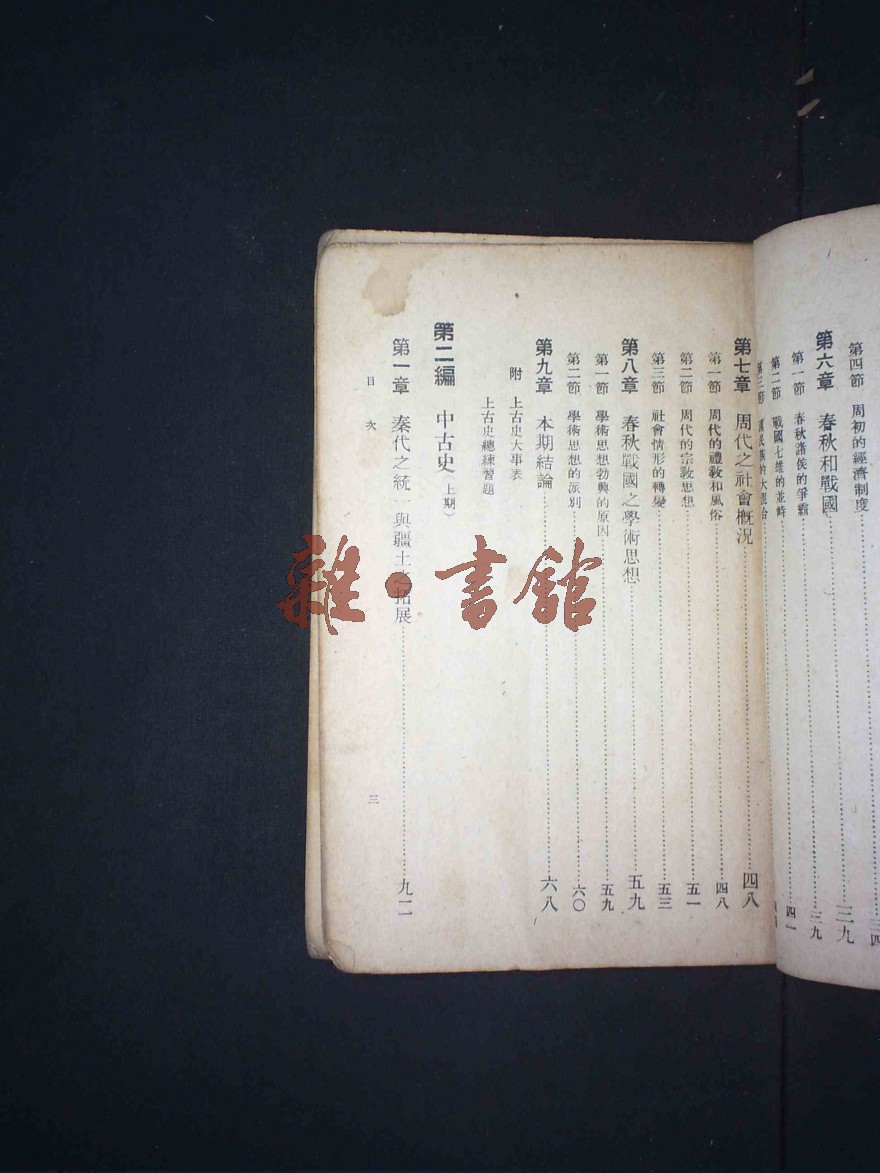 第四節　周初的經濟制度……三四
第六章　春秋和戰國……三九
第一節　春秋諸侯的爭霸……三九
第二節　戰國七雄的並峙……四一
第三節　民族的大混合
第七章　周代之社會概況……四八
第一節　周代的禮教和風俗……四八
第二節　周代的宗教思想……五一
第三節　社會情形的轉變……五三
第八章　春秋戰國之學術思想……五九
第一節　學術思想勃興的原因……五九
第二節　學術思想的派別……六〇
第九章　本期結論……六八
附　上古史大事表
上古史總練習題
第二編　中古史（上期）
第一章　秦代之統一與疆土之拓展……九二
目次
三
雜・書館